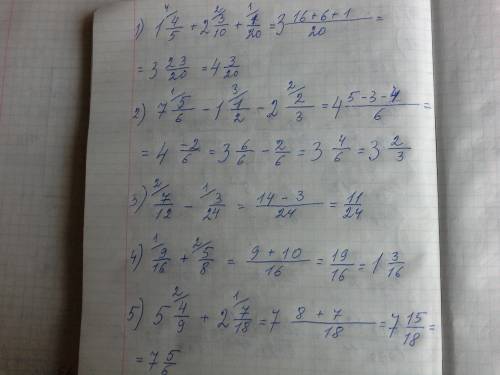 1) 1 4/5 + 2 3/10 + 1/20 = 3 (16+6+1)/20 =
= 3 23/20 = 4 3/20
2) 7 5/6 - 1 1/2 - 2 2/3 = 4 (5-3-4)/6 =
= 4 -2/6 = 3 6/6 - 2/6 = 3 4/6 = 3 2/3
3) 7/12 - 3/24 = (14-3)/24 = 11/24
4) 9/16 + 5/8 = (9+10)/16 = 19/16 = 1 3/16
5) 5 4/9 + 2 7/18 = 7 (8+7)/18 = 7 15/18 =
= 7 5/6